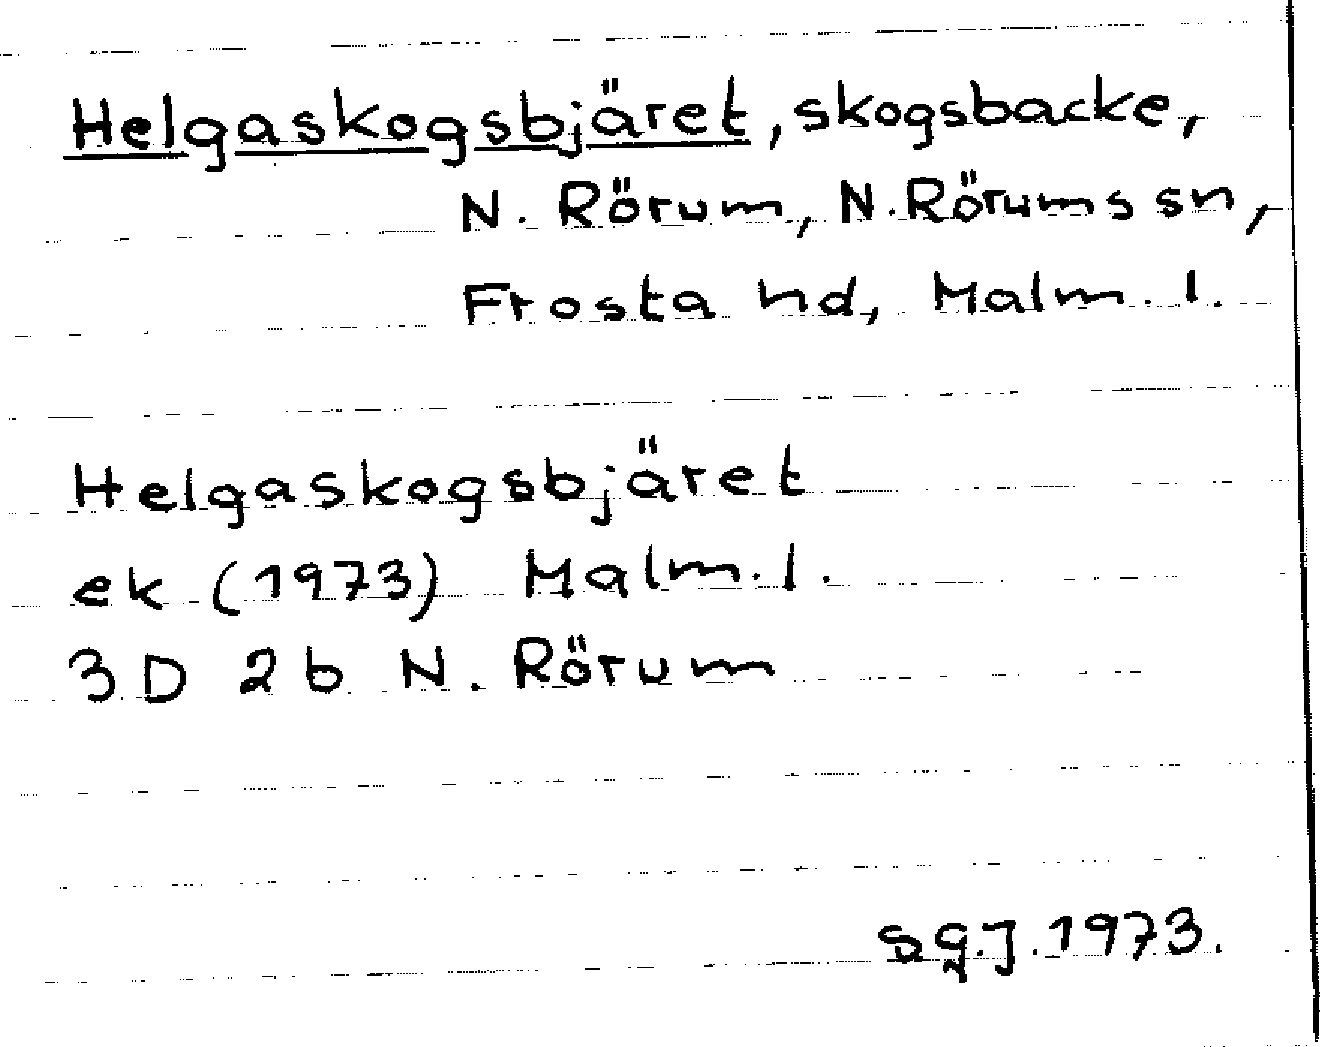 Helgaskogsbjäret, skogsbacke,
N. Rörum, N. Rörums sn,
Frosta hd, Malm. l.
Helgaskogsbjäret
ek (1973) Malm. l.
3 D 2 b N. Rörum
sg.J. 1973.